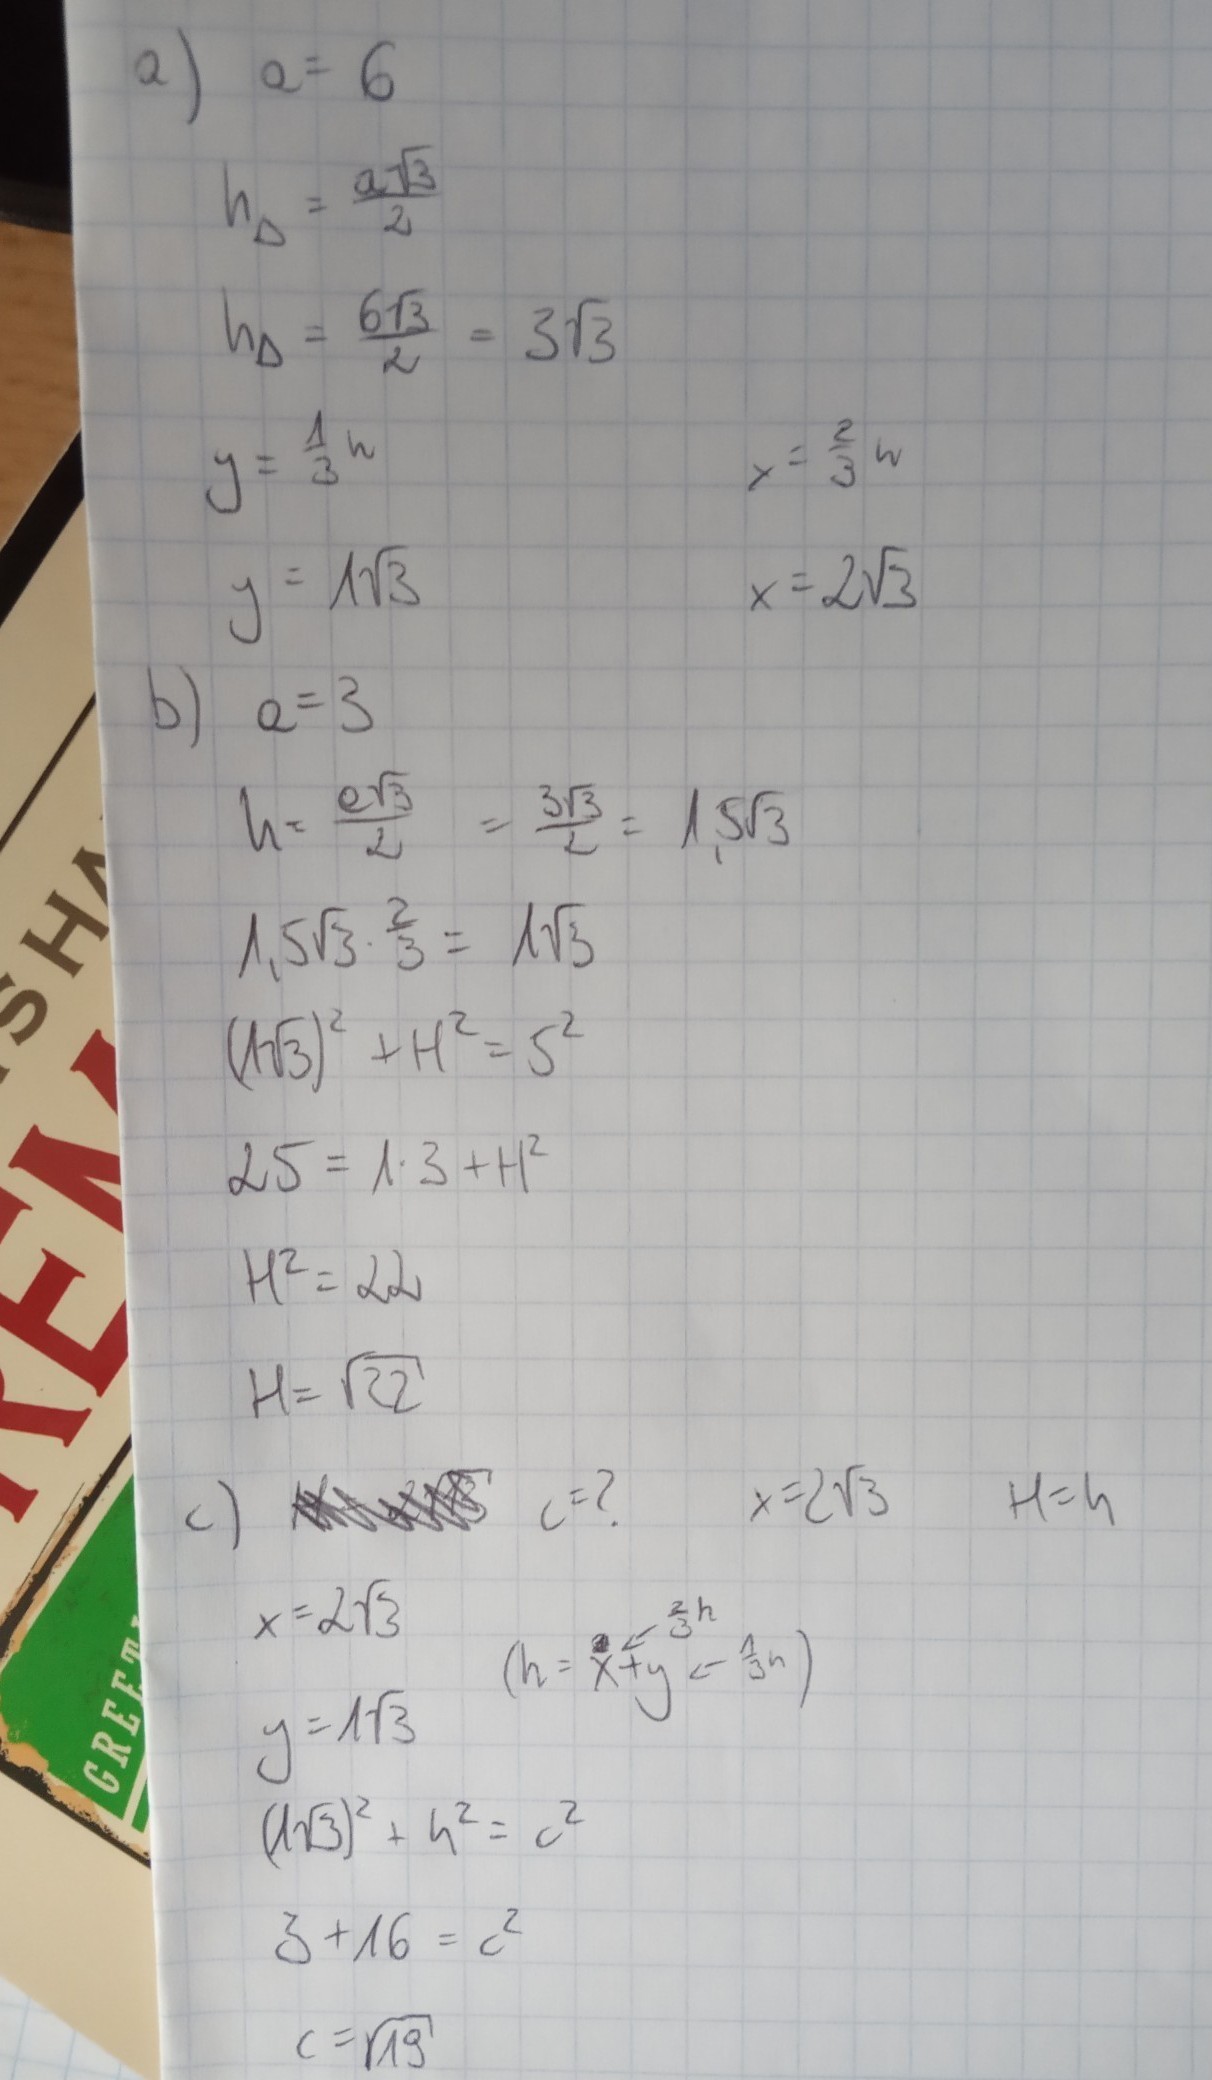 a) a = 6
h△ = a√3/2
h△ = 6√3/2 = 3√3
y = 1/3 h x = 2/3 h
y = 1√3 x = 2√3
b) a = 3
h = a√3/2 = 3√3/2 = 1,5√3
1,5√3 · 2/3 = 1√3
(1√3)² + H² = 5²
25 = 1·3 + H²
H² = 22
H = √22
c) c = ? x = 2√3 H = h
x = 2√3
(h = x + y ← 2/3 h ← 1/3 h)
y = 1√3
(1√3)² + h² = c²
3 + 16 = c²
c = √19
SHA
REM
GREETI